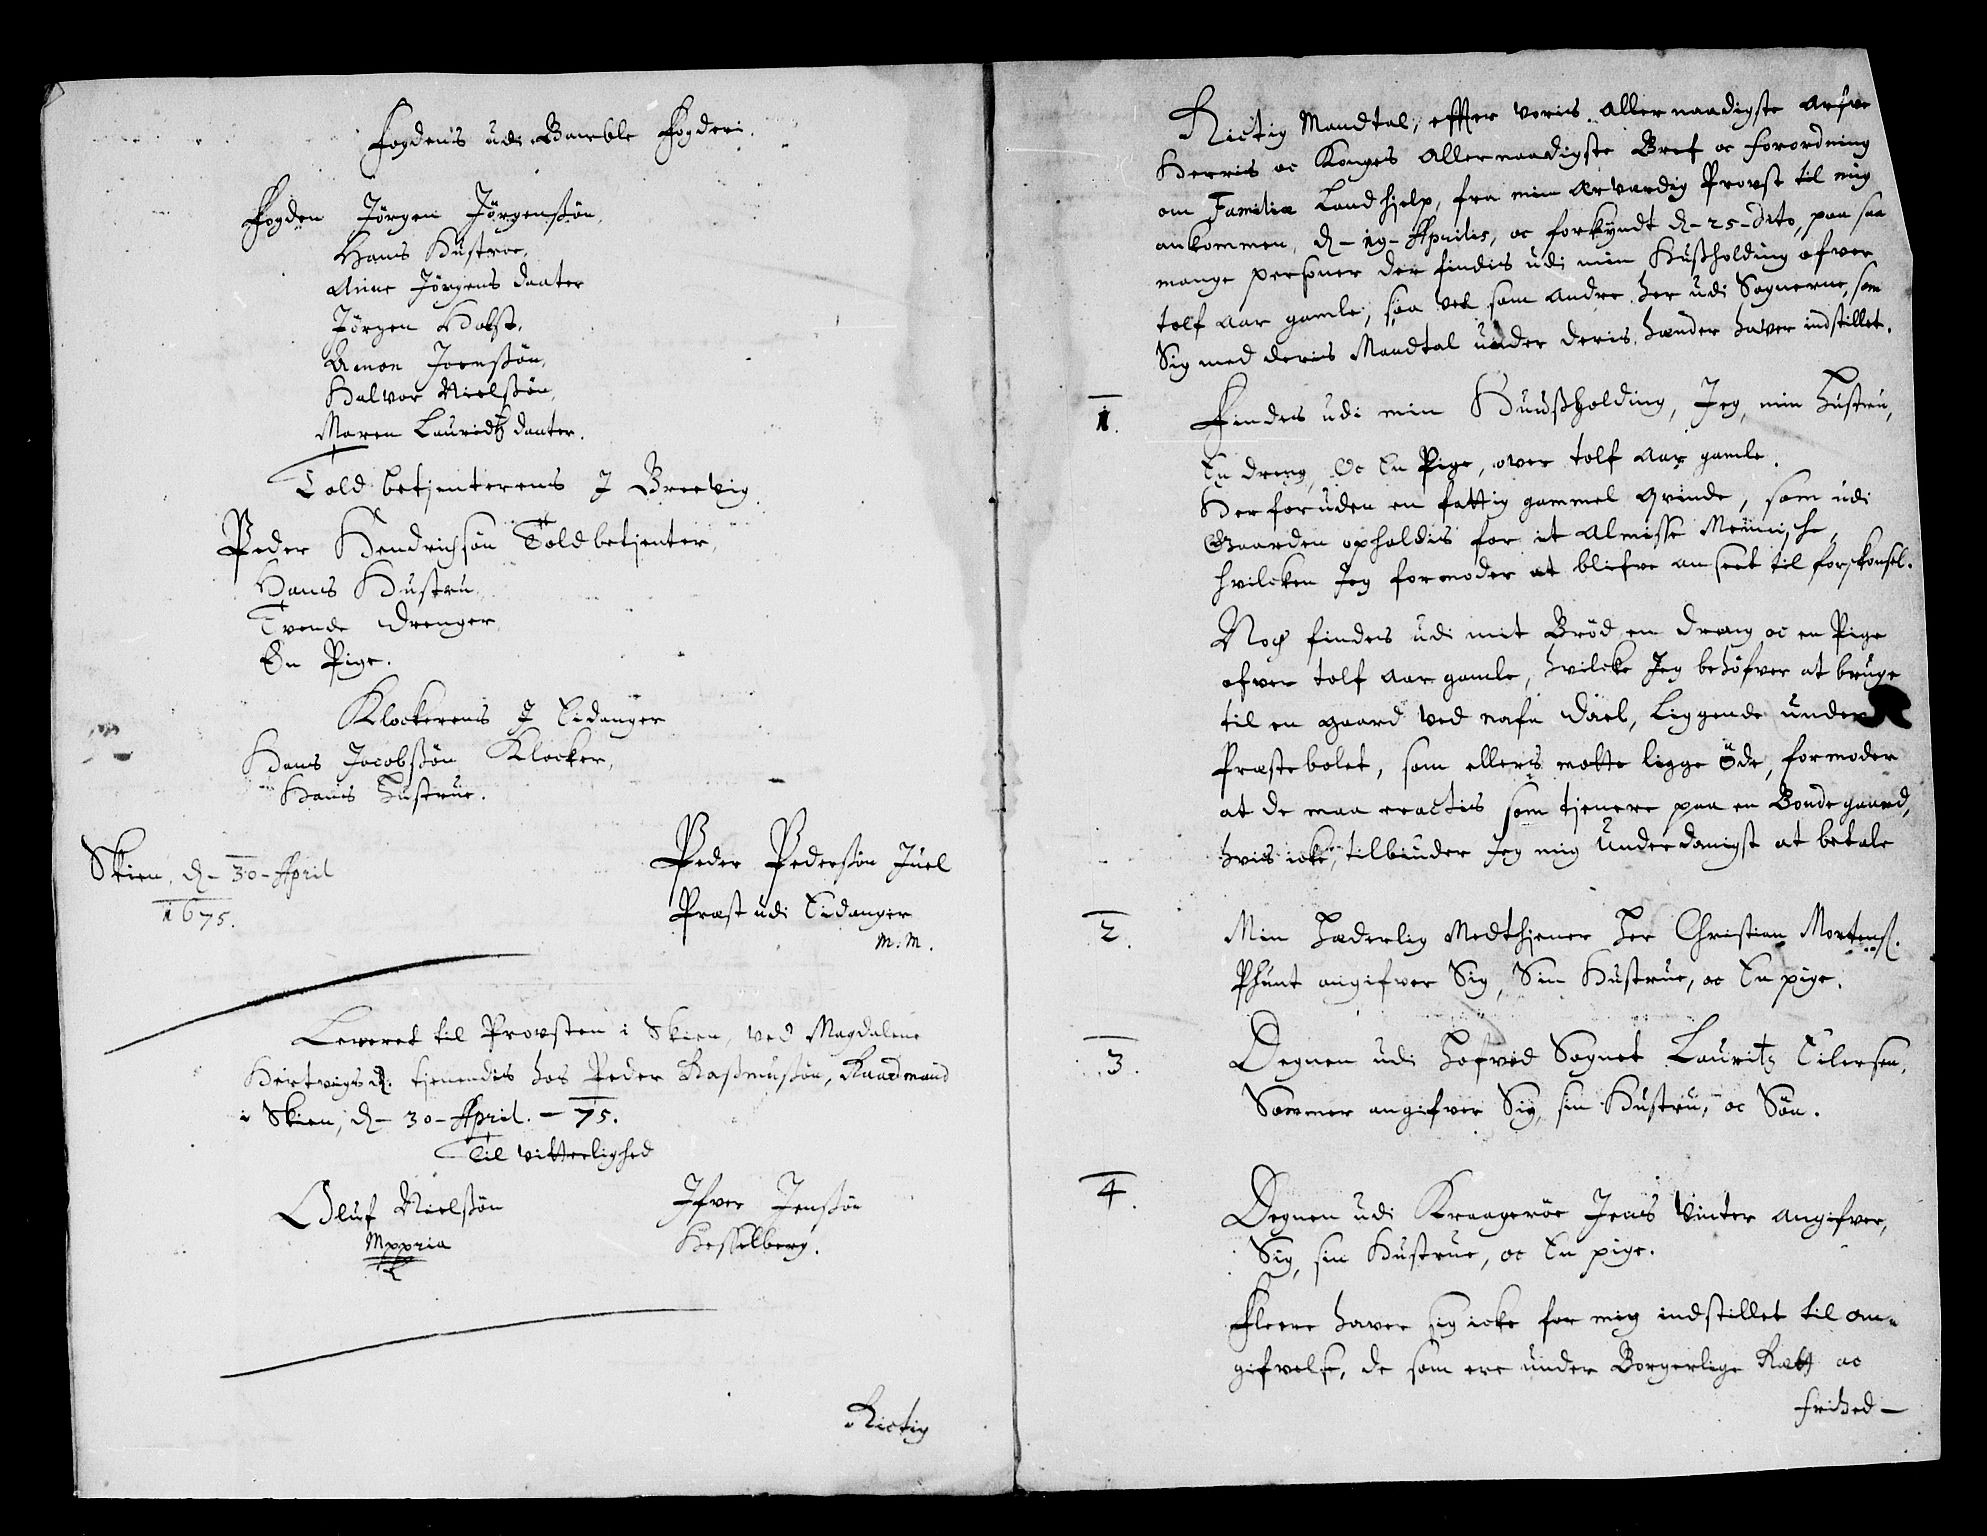 Fogdens udi Bamble Fogderi.
Fogden Jörgen Jörgensßön,
Hans Hustroe,
Anne Jörgens daater
Jörgen Holst,
Amon Joensßön,
Halvor Nielsßön,
Maren Lauridtz daater.
Told betienterens J Brevig
Peder Hendrichsön Toldbetienter,
Hans Hustru,
Tvende drenger,
En Pige.
Klockerens J Eidanger
Hans Jacobsßön Klocker,
Hans Hustrue.
Skien, d. 30 April
1675.
Peder Pedersßön Juel
Præst udi Eidanger
m. m.
Leveret til Provsten i Skien, ved Magdalene
Hertvigs d. tienendis hos Peder Rasßmusßön, Raadmand
i Skien, d- 30- April. - 75.
Til vitterlighed
Oluf Nielsßön
Mppria
Ifver Jensßön
Hesselberg.
Rictig
Rictig Mandtal, effter voris Allernaadigste Arfve
Herris oc Konges Allernaadigste Bref oc forordning
om Familiæ Landhielp, fra min ærværdig Provst til mig
ankommen, d- 19- Aprilis, oc forkyndt d- 25- dito, paa saa
mange personer der findis udi min Husßholding ofver
tolf aar gamle, saa vel som andre her udi Sognerne, som
Sig med deris Mandtal under deris hænder haver indstillet.
1. Findes udi min Huusßholding, Jeg, min Hustru,
En dreng, Oc En Pige, over tolf aar gamle.
Herforuden en fattig gammel qvinde, som udi
Gaarden opholdis for it Almisse Menniske,
hvilcken Jeg formoder at blifve anseet til forskonsel.
Noch findes udi mit Bröd en dreng oc en Pige
ofver tolf aar gamle, hvilcke Jeg behöfver at bruge
til en gaard ved nafn Dael, Liggende under
Præstebolet, som ellers motte ligge öde, formoder
at de maa ractis som tienere paa en Bondegaard,
hvis icke, tilbiuder Jeg mig Underdanigst at betale
2. Min Hæderlig Medthiener Her Christian Mortens.
Phunt angifver Sig, Sin Hustrue, oc En pige.
3. Degnen udi Hofved Sognet Lauritz Eilersen,
Sommer angifver Sig, sin Hustru, oc Sön.
4. Degnen udi Kraageröe Jens Vinter angifver,
Sig, sin Hustrue, oc En pige.
Fleere haver sig icke for mig indstillet til an-
gifvelse, de som ere under Borgerlige Rætt oc
frihed -